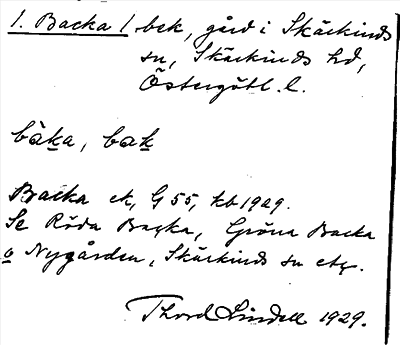 1. Backa 1 bek, gård i Skärkinds
sn, Skärkinds hd,
Östergötl. l.
bàka, bak
Backa ek, G 55, kb 1929.
Se Röda Backa, Gröna Backa
o Nygården, Skärkinds sn etc.
Thord Lindell 1929.